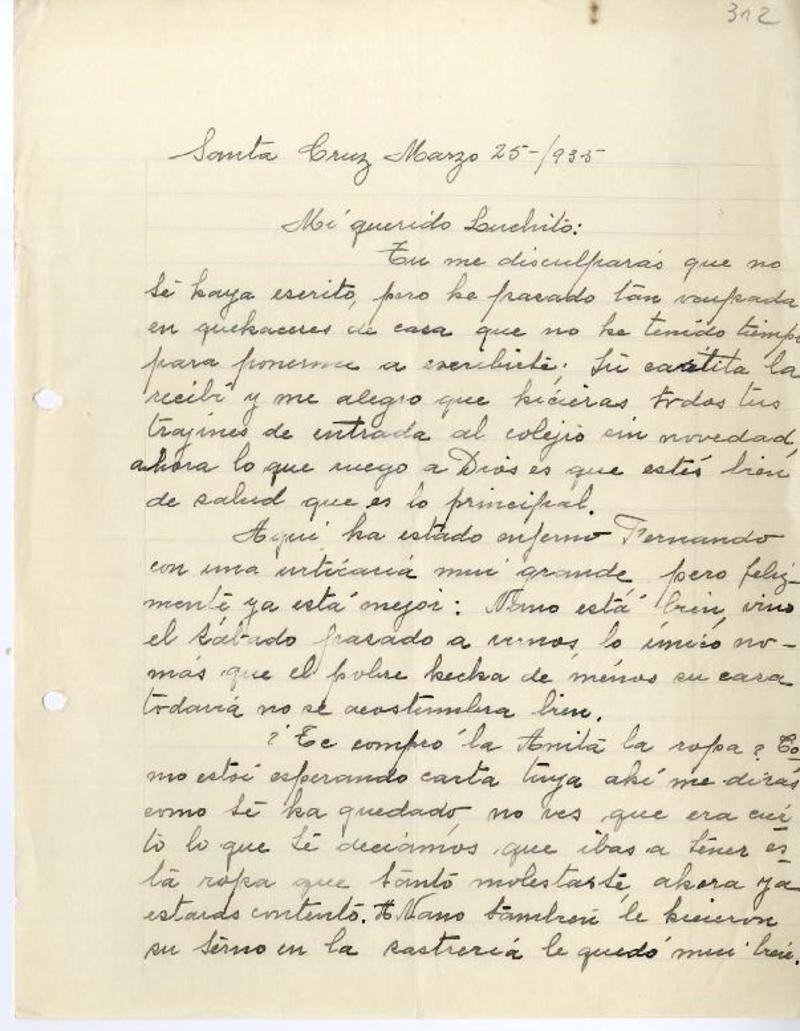 312
Santa Cruz Marzo 25-/935
Mi querido Luchito:
Tu me disculparás que no
te haya escrito, pero he pasado tan ocupada
en quehaceres de casa que no he tenido tiempo
para ponerme a escribirte; tu cartita la
recibí y me alegro que hicieras todos tus
trajines de entrada al colejio sin novedad,
ahora lo que ruego a Dios es que estés bien
de salud que es lo principal.
Aquí ha estado enfermo Fernando
con una urticaria mui grande pero feliz-
mente ya está mejor: Nano está bien, vino
el sábado pasado a vernos, lo único no-
más que el pobre hecha de ménos su casa
todavia no se acostumbra bien.
? Te compró la Anita la ropa? Co-
mo estoi esperando carta tuya ahí me dirás
como te ha quedado, no ves que era cier
to lo que te deciamos que ibas a tener es-
ta ropa que tanto molestaste, ahora ya
estarás contento. A Nano tambien le hicieron
su terno en la sastreria le quedó mui bien.